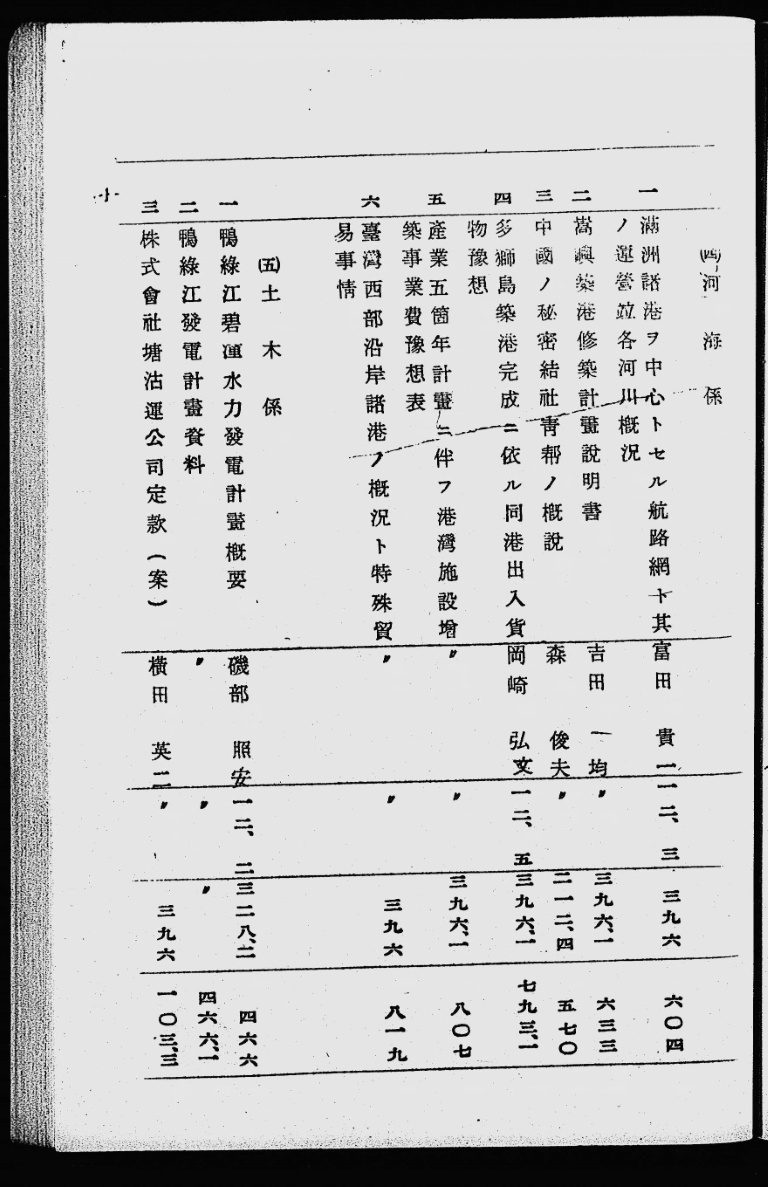 ㈣河海係
一 滿洲諸港ヲ中心トセル航路網ト其 富田 貴一 一二、三 三九六 六〇四
ノ運營竝各河川概況
二 嵩嶼築港修築計畫說明書 吉田 一均 〃 三九六、一 六三三
三 中國ノ秘密結社靑幇ノ概說 森 俊夫 〃 二一二、四 五七〇
四 多獅島築港完成ニ依ル同港出入貨 岡崎 弘文 一二、五 三九六、一 七九三、一
物豫想
五 產業五箇年計畫ニ伴フ港灣施設增 〃 〃 三九六、一 八〇七
築事業費豫想表
六 臺灣西部沿岸諸港ノ概況ト特殊貿 〃 〃 三九六 八一九
易事情
㈤土木係
一 鴨綠江碧潼水力發電計畫概要 磯部 照安 一二、二 三二八、二 四六六
二 鴨綠江發電計畫資料 〃 〃 〃 四六六、一
三 株式會社塘沽運公司定款（案） 橫田 英二 〃 三九六 一〇三、三